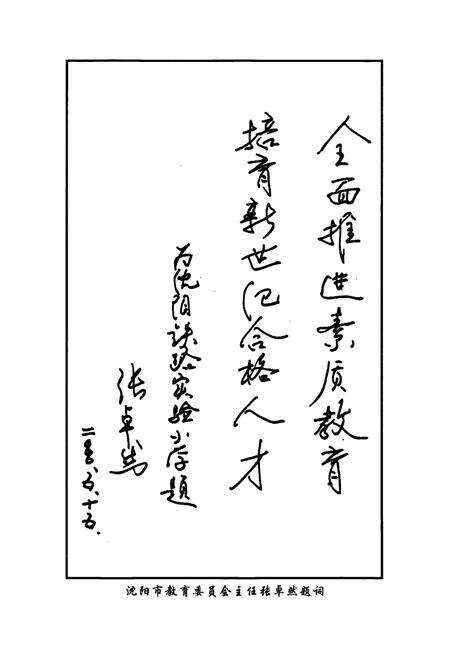 全面推进素质教育
培育新世纪合格人才
为沈阳铁路实验小学题
张卓然
二〇〇〇、五、十五、
沈阳市教育委员会主任张卓然题词